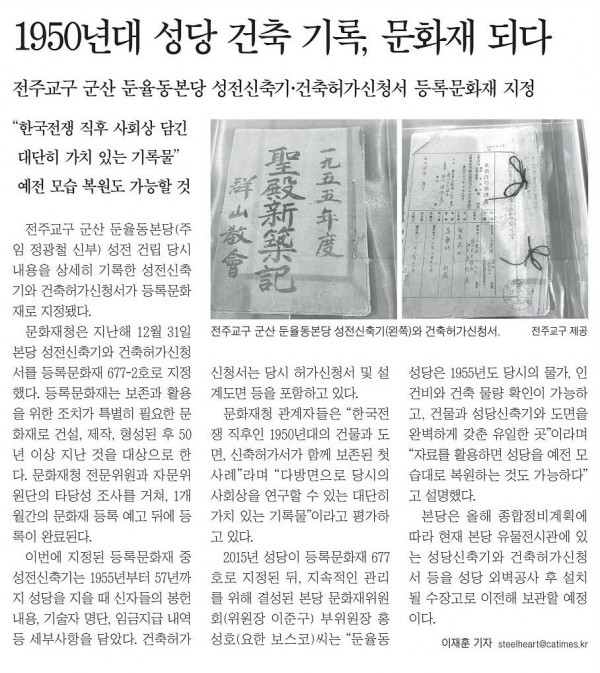 1950년대 성당 건축 기록, 문화재 되다
전주교구 군산 둔율동본당 성전신축기·건축허가신청서 등록문화재 지정
“한국전쟁 직후 사회상 담긴
대단히 가치 있는 기록물”
예전 모습 복원도 가능할 것
一九五五年度
聖殿新築記
群山敎會
전주교구 군산 둔율동본당 성전신축기(왼쪽)와 건축허가신청서.
전주교구 제공
전주교구 군산 둔율동본당(주
임 정광철 신부) 성전 건립 당시
내용을 상세히 기록한 성전신축
기와 건축허가신청서가 등록문화
재로 지정됐다.
문화재청은 지난해 12월 31일
본당 성전신축기와 건축허가신청
서를 등록문화재 677-2호로 지정
했다. 등록문화재는 보존과 활용
을 위한 조치가 특별히 필요한 문
화재로 건설, 제작, 형성된 후 50
년 이상 지난 것을 대상으로 한
다. 문화재청 전문위원과 자문위
원단의 타당성 조사를 거쳐, 1개
월간의 문화재 등록 예고 뒤에 등
록이 완료된다.
이번에 지정된 등록문화재 중
성전신축기는 1955년부터 57년까
지 성당을 지을 때 신자들의 봉헌
내용, 기술자 명단, 임금지급 내역
등 세부사항을 담았다. 건축허가
신청서는 당시 허가신청서 및 설
계도면 등을 포함하고 있다.
문화재청 관계자들은 “한국전
쟁 직후인 1950년대의 건물과 도
면, 신축허가서가 함께 보존된 첫
사례”라며 “다방면으로 당시의
사회상을 연구할 수 있는 대단히
가치 있는 기록물”이라고 평가하
고 있다.
2015년 성당이 등록문화재 677
호로 지정된 뒤, 지속적인 관리
를 위해 결성된 본당 문화재위원
회(위원장 이준구) 부위원장 홍
성호(요한 보스코)씨는 “둔율동
성당은 1955년도 당시의 물가, 인
건비와 건축 물량 확인이 가능하
고, 건물과 성당신축기와 도면을
완벽하게 갖춘 유일한 곳”이라며
“자료를 활용하면 성당을 예전 모
습대로 복원하는 것도 가능하다”
고 설명했다.
본당은 올해 종합정비계획에
따라 현재 본당 유물전시관에 있
는 성당신축기와 건축허가신청
서 등을 성당 외벽공사 후 설치
될 수장고로 이전해 보관할 예정
이다.
이재훈 기자 steelheart@catimes.kr